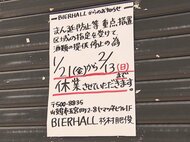 BIERHALLからのお知らせ
まん延防止等重点措置
区域の指定を受けて
酒類の提供停止の為
1/21(金)から2/13(日)まで
休業させていただきます。
〒500-8835
BIERHALL